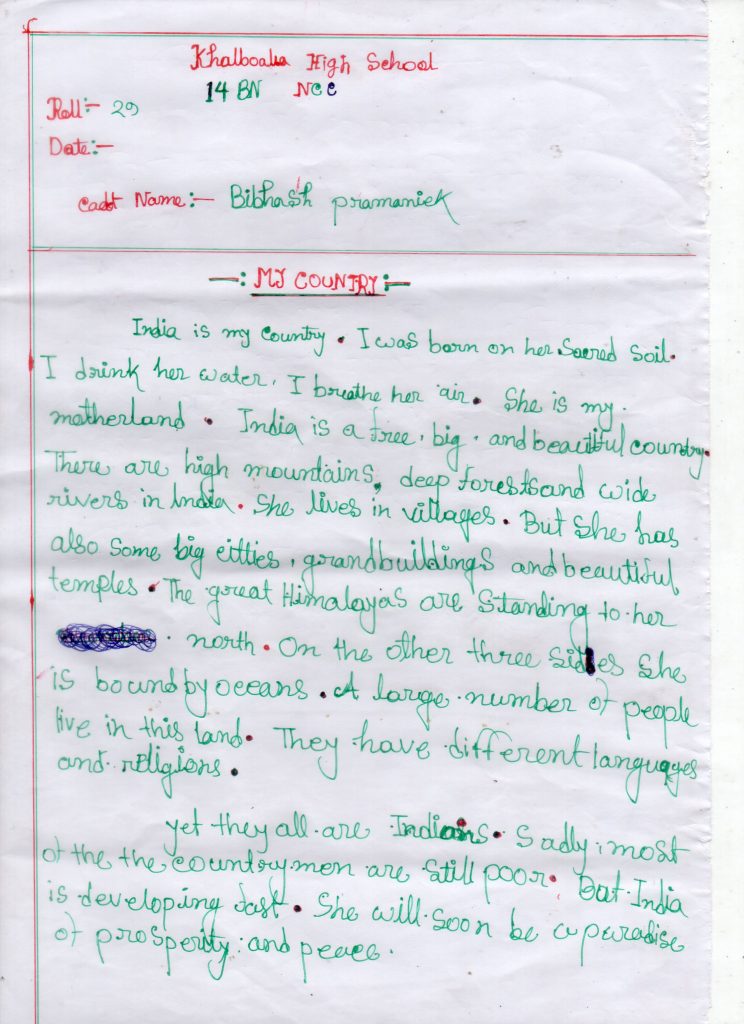 Khalboalia High School
14 BN NCC
Roll:- 29
Date:-
Cadet Name:- Bibhash pramaniek
—: MY COUNTRY :—
India is my country. I was born on her Sacred soil.
I drink her water, I breathe her air. She is my
motherland. India is a free, big, and beautiful country.
There are high mountains, deep forests and wide
rivers in India. She lives in villages. But she has
also some big eitties, grand buildings and beautiful
temples. The great Himalayas are standing to her
north. On the other three sides she
is bound by oceans. A large number of people
live in this land. They have different languages
and religions.
yet they all are Indians. Sadly, most
of the the countrymen are still poor. But India
is developing fast. She will soon be a paradise
of prosperity and peace.